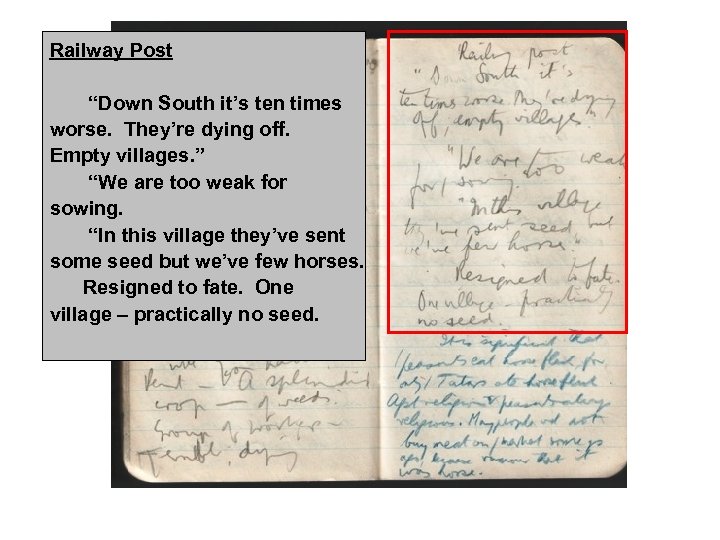 Railway Post
“Down South it’s ten times
worse.  They’re dying off.
Empty villages.”
“We are too weak for
sowing.
“In this village they’ve sent
some seed but we’ve few horses.
Resigned to fate.  One
village – practically no seed.
Rent – A splendid
crop – of weeds.
Group of workers –
terrible, dying
Railway post
"Down South it's
ten times worse. They're dying
off, empty villages"
"We are too weak
for sowing.
"In this village
they've sent seed, but
we've few horses"
Resigned to fate.
One village – practically
no seed.
It is significant that
peasants eat horse flesh for
only Tatars ate horseflesh
religion & peasants always
religious. Many people wd not
buy meat on market some
ago, because rumour that it
was horse.